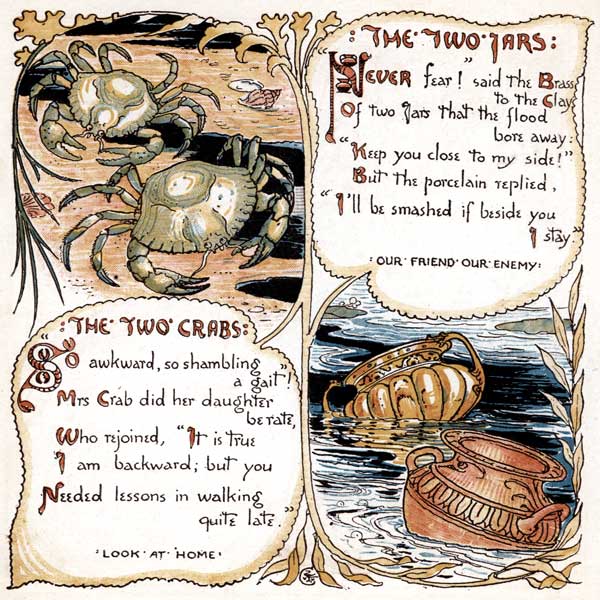 :THE·TWO·CRABS:
"SO awkward, so shambling
a gait"!
Mrs Crab did her daughter
berate,
Who rejoined, "It is true
I am backward; but you
Needed lessons in walking
quite late."
·LOOK·AT·HOME·
:THE·TWO·JARS:
"NEVER fear!" said the Brass
to the Clay,
Of two Jars that the flood
bore away:
"Keep you close to my side!"
But the porcelain replied,
"I'll be smashed if beside you
I stay"
·OUR·FRIEND·OUR·ENEMY: